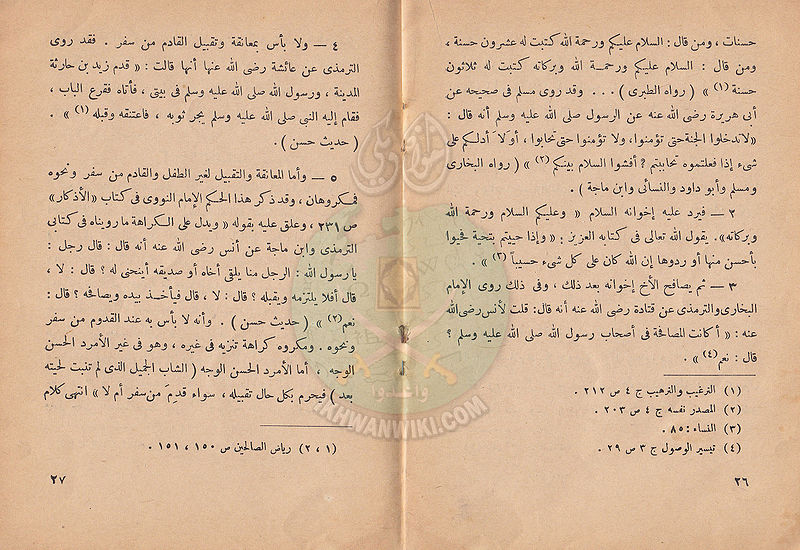 حسنات ، ومن قال : السلام عليكم ورحمة الله كتبت له عشرون حسنة ،
ومن قال : السلام عليكم ورحمـة الله وبركاته كتبت له ثلاثون
حسنة (١) » ( رواه الطبرى ) . . . وقد روى مسلم فى صحيحه عن
أبى هريرة رضى الله عنه عن الرسول صلى الله عليه وسلم أنه قال :
«لاتدخلوا الجنة حتى تؤمنوا، ولا تؤمنوا حتى تحابوا ، أوَلاَ أدلكم على
شىء إذا فعلتموه تحاببتم ? أفشوا السلام بينكم (٢) » ( رواه البخارى
ومسلم وأبو داود والنسائى وابن ماجة ) .
٢ — فيرد عليه إخوانه السلام « وعليكم السلام ورحمة الله
وبركاته» . يقول الله تعالى فى كتابه العزيز : « وإذا حييتم بتحية فحيوا
بأحسن منها أو ردوها إن الله كان على كل شىء حسيباً (٣) » .
٣ — ثم يصافح الأخ إخوانه بعد ذلك ، وفى ذلك روى الإمام
البخارى والترمذى عن قتادة رضى الله عنه أنه قال: قلت لأنس رضى الله
عنه : « أكانت المصافحة فى أصحاب رسول الله صلى الله عليه وسلم ?
قال : نعم (٤) » .
(١) الترغيب والترهيب ج ٤ ص ٢١٢ .
(٢) المصدر نفسه ج ٤ ص ٢٠٣ .
(٣) النساء : ٨٥ .
(٤) تيسير الوصول ج ٣ ص ٢٩ .
٢٦
٤ — ولا بأس بمعانقة وتقبيل القادم من سفر . فقد روى
الترمذى عن عائشة رضى الله عنها أنها قالت : « قدم زيد بن حارثة
المدينة ، ورسول الله صلى الله عليه وسلم فى بيتى ، فأتاه فقرع الباب ،
فقام إليه النبى صلى الله عليه وسلم يجر ثوبه ، فاعتنقه وقبله (١) » .
( حديث حسن ) .
٥ — وأما المعانقة والتقبيل لغير الطفل والقادم من سفر ونحوه
فمكروهان ، وقد ذكر هذا الحكم الإمام النووى فى كتاب «الأذكار»
ص ٢٣١ ، وعلق عليه بقوله « ويدل على الكراهة ما رويناه فى كتابى
الترمذى وابن ماجة عن أنس رضى الله عنه أنه قال : قال رجل :
يا رسول الله : الرجل منا يلقى أخاه أو صديقه أينحنى له ? قال : لا ،
قال أفلا يلتزمه ويقبله ? قال : لا ، قال فيأخـذ بيده ويصافحه ? قال :
نعم (٢) » ( حديث حسن ) . وأنه لا بأس به عند القدوم من سفر
ونحوه . ومكروه كراهة تنزيه فى غيره ، وهو فى غير الأمرد الحسن
الوجه ، أما الأمرد الحسن الوجه ( الشاب الجميل الذى لم تنبت لحيته
بعد ) فيحرم بكل حال تقبيله ، سواء قدِمَ من سفر أم لا » انتهى كلام
(١ ، ٢) رياض الصالحين ص ١٥٠ ، ١٥١ .
٢٧
وأعدوا
IKHWANWIKI.COM